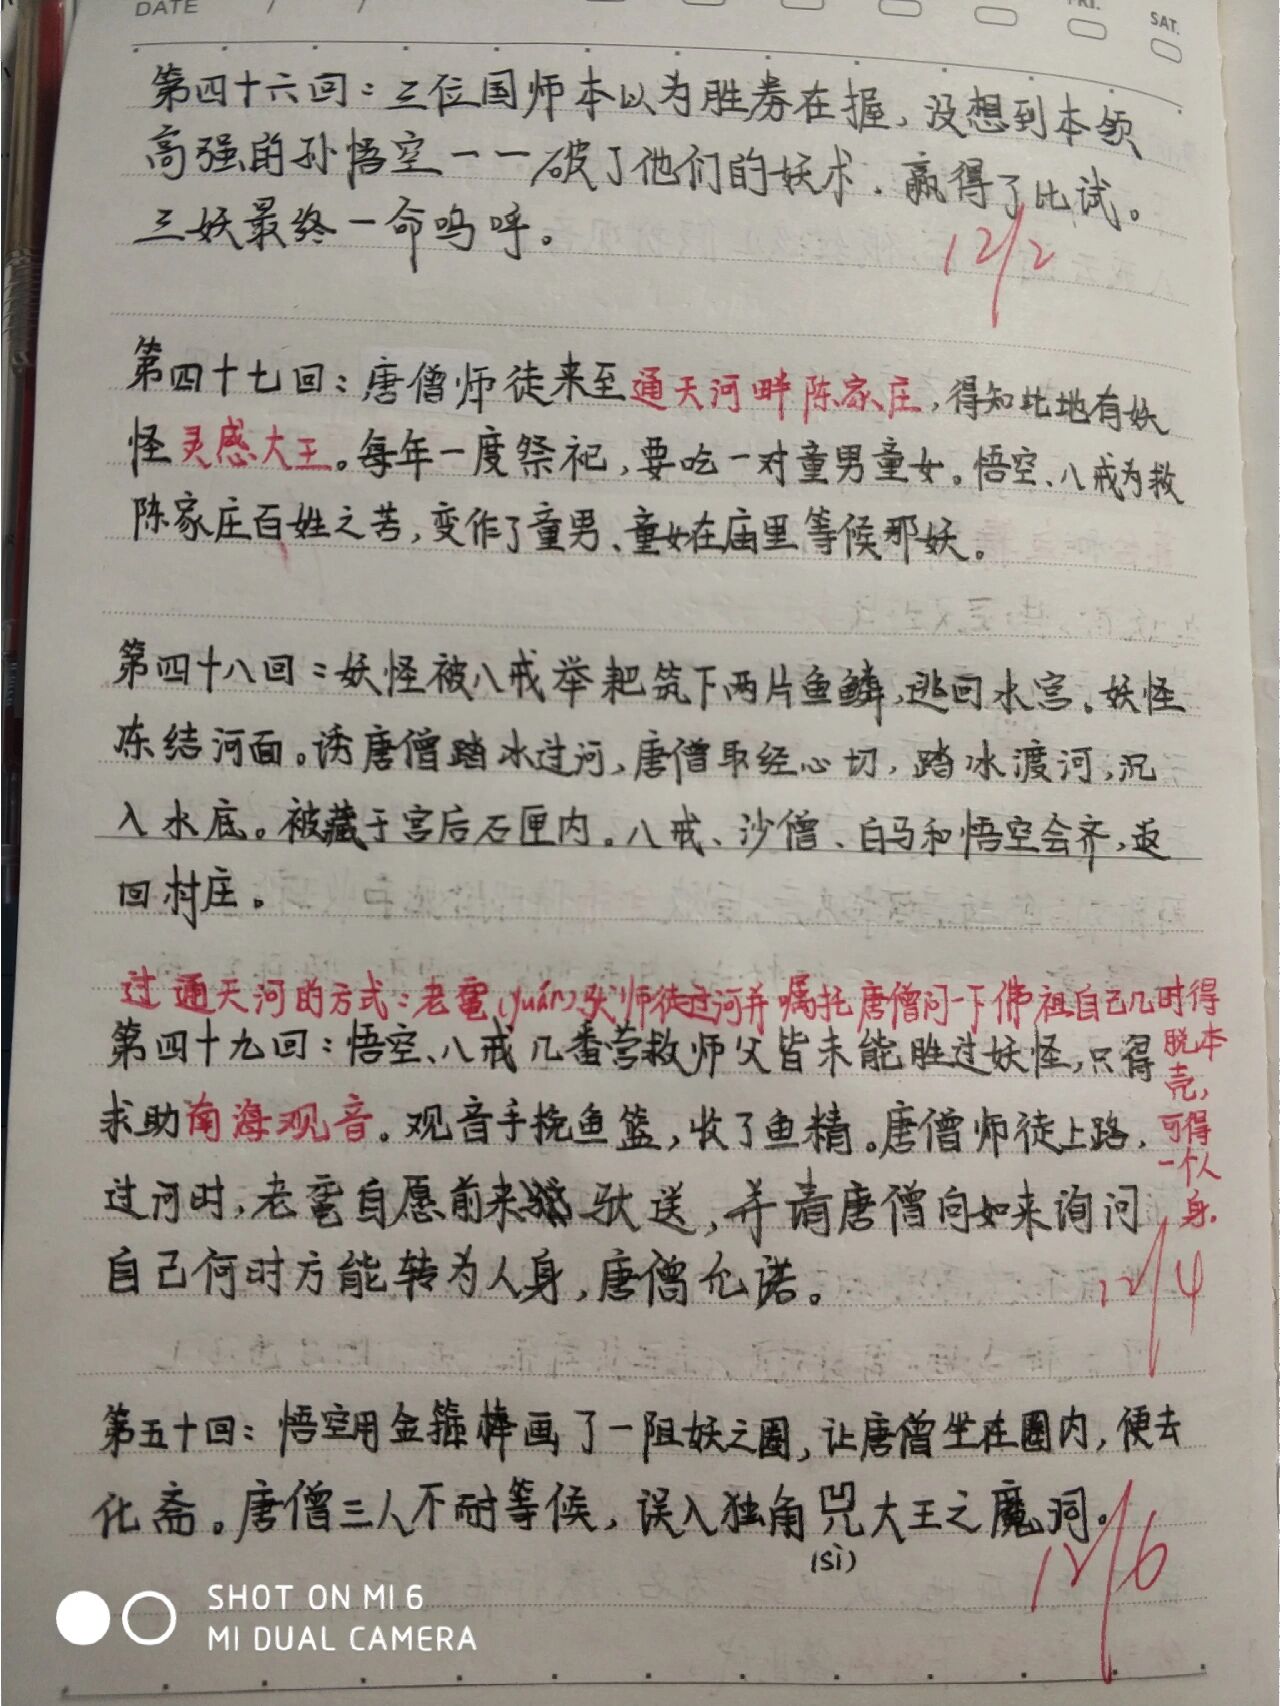 DATE / /
FRI.
SAT.
第四十六回：三位国师本以为胜券在握，没想到本领
高强的孙悟空一一破了他们的妖术，赢得了比试。
三妖最终一命呜呼。
12/2
第四十七回：唐僧师徒来至通天河畔陈家庄，得知此地有妖
怪灵感大王。每年一度祭祀，要吃一对童男童女。悟空、八戒为救
陈家庄百姓之苦，变作了童男、童女在庙里等候那妖。
第四十八回：妖怪被八戒举耙筑下两片鱼鳞，逃回水宫。妖怪
冻结河面。诱唐僧踏冰过河，唐僧取经心切，踏冰渡河，沉
入水底。被藏于宫后石匣内。八戒、沙僧、白马和悟空会齐，返
回村庄。
过通天河的方式：老鼋(yuán)驮师徒过河并嘱托唐僧问一下佛祖自己几时得
脱本
壳，
可得
一个人
身.
第四十九回：悟空、八戒几番营救师父皆未能胜过妖怪，只得
求助南海观音。观音手挽鱼篮，收了鱼精。唐僧师徒上路，
过河时，老鼋自愿前来驮送，并请唐僧向如来询问
自己何时方能转为人身，唐僧允诺。
12/4
第五十回：悟空用金箍棒画了一阻妖之圈，让唐僧坐在圈内，便去
化斋。唐僧三人不耐等候，误入独角兕大王之魔洞。
(sì)
12/6
SHOT ON MI 6
MI DUAL CAMERA